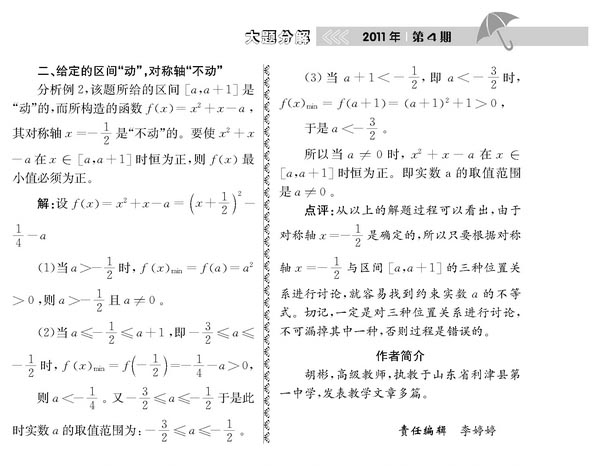 大题分解 《《《 2011年 | 第4期
二、给定的区间“动”,对称轴“不动”
分析例2,该题所给的区间[a,a+1]是
“动”的,而所构造的函数f(x)=x²+x-a,
其对称轴x=-1/2是“不动”的。要使x²+x
-a在x∈[a,a+1]时恒为正,则f(x)最
小值必须为正。
解:设f(x)=x²+x-a=(x+1/2)²-
1/4-a
(1)当a>-1/2时,f(x)min=f(a)=a²
>0,则a>-1/2且a≠0。
(2)当a≤-1/2≤a+1,即-3/2≤a≤
-1/2时,f(x)min=f(-1/2)=-1/4-a>0,
则a<-1/4。又-3/2≤a≤-1/2于是此
时实数a的取值范围为:-3/2≤a≤-1/2。
(3)当a+1<-1/2,即a<-3/2时,
f(x)min=f(a+1)=(a+1)²+1>0,
于是a<-3/2。
所以当a≠0时,x²+x-a在x∈
[a,a+1]时恒为正。即实数a的取值范围
是a≠0。
点评:从以上的解题过程可以看出,由于
对称轴x=-1/2是确定的,所以只要根据对称
轴x=-1/2与区间[a,a+1]的三种位置关
系进行讨论,就容易找到约束实数a的不等
式。切记,一定是对三种位置关系进行讨论,
不可漏掉其中一种,否则过程是错误的。
作者简介
胡彬,高级教师,执教于山东省利津县第
一中学,发表教学文章多篇。
责任编辑 李婷婷